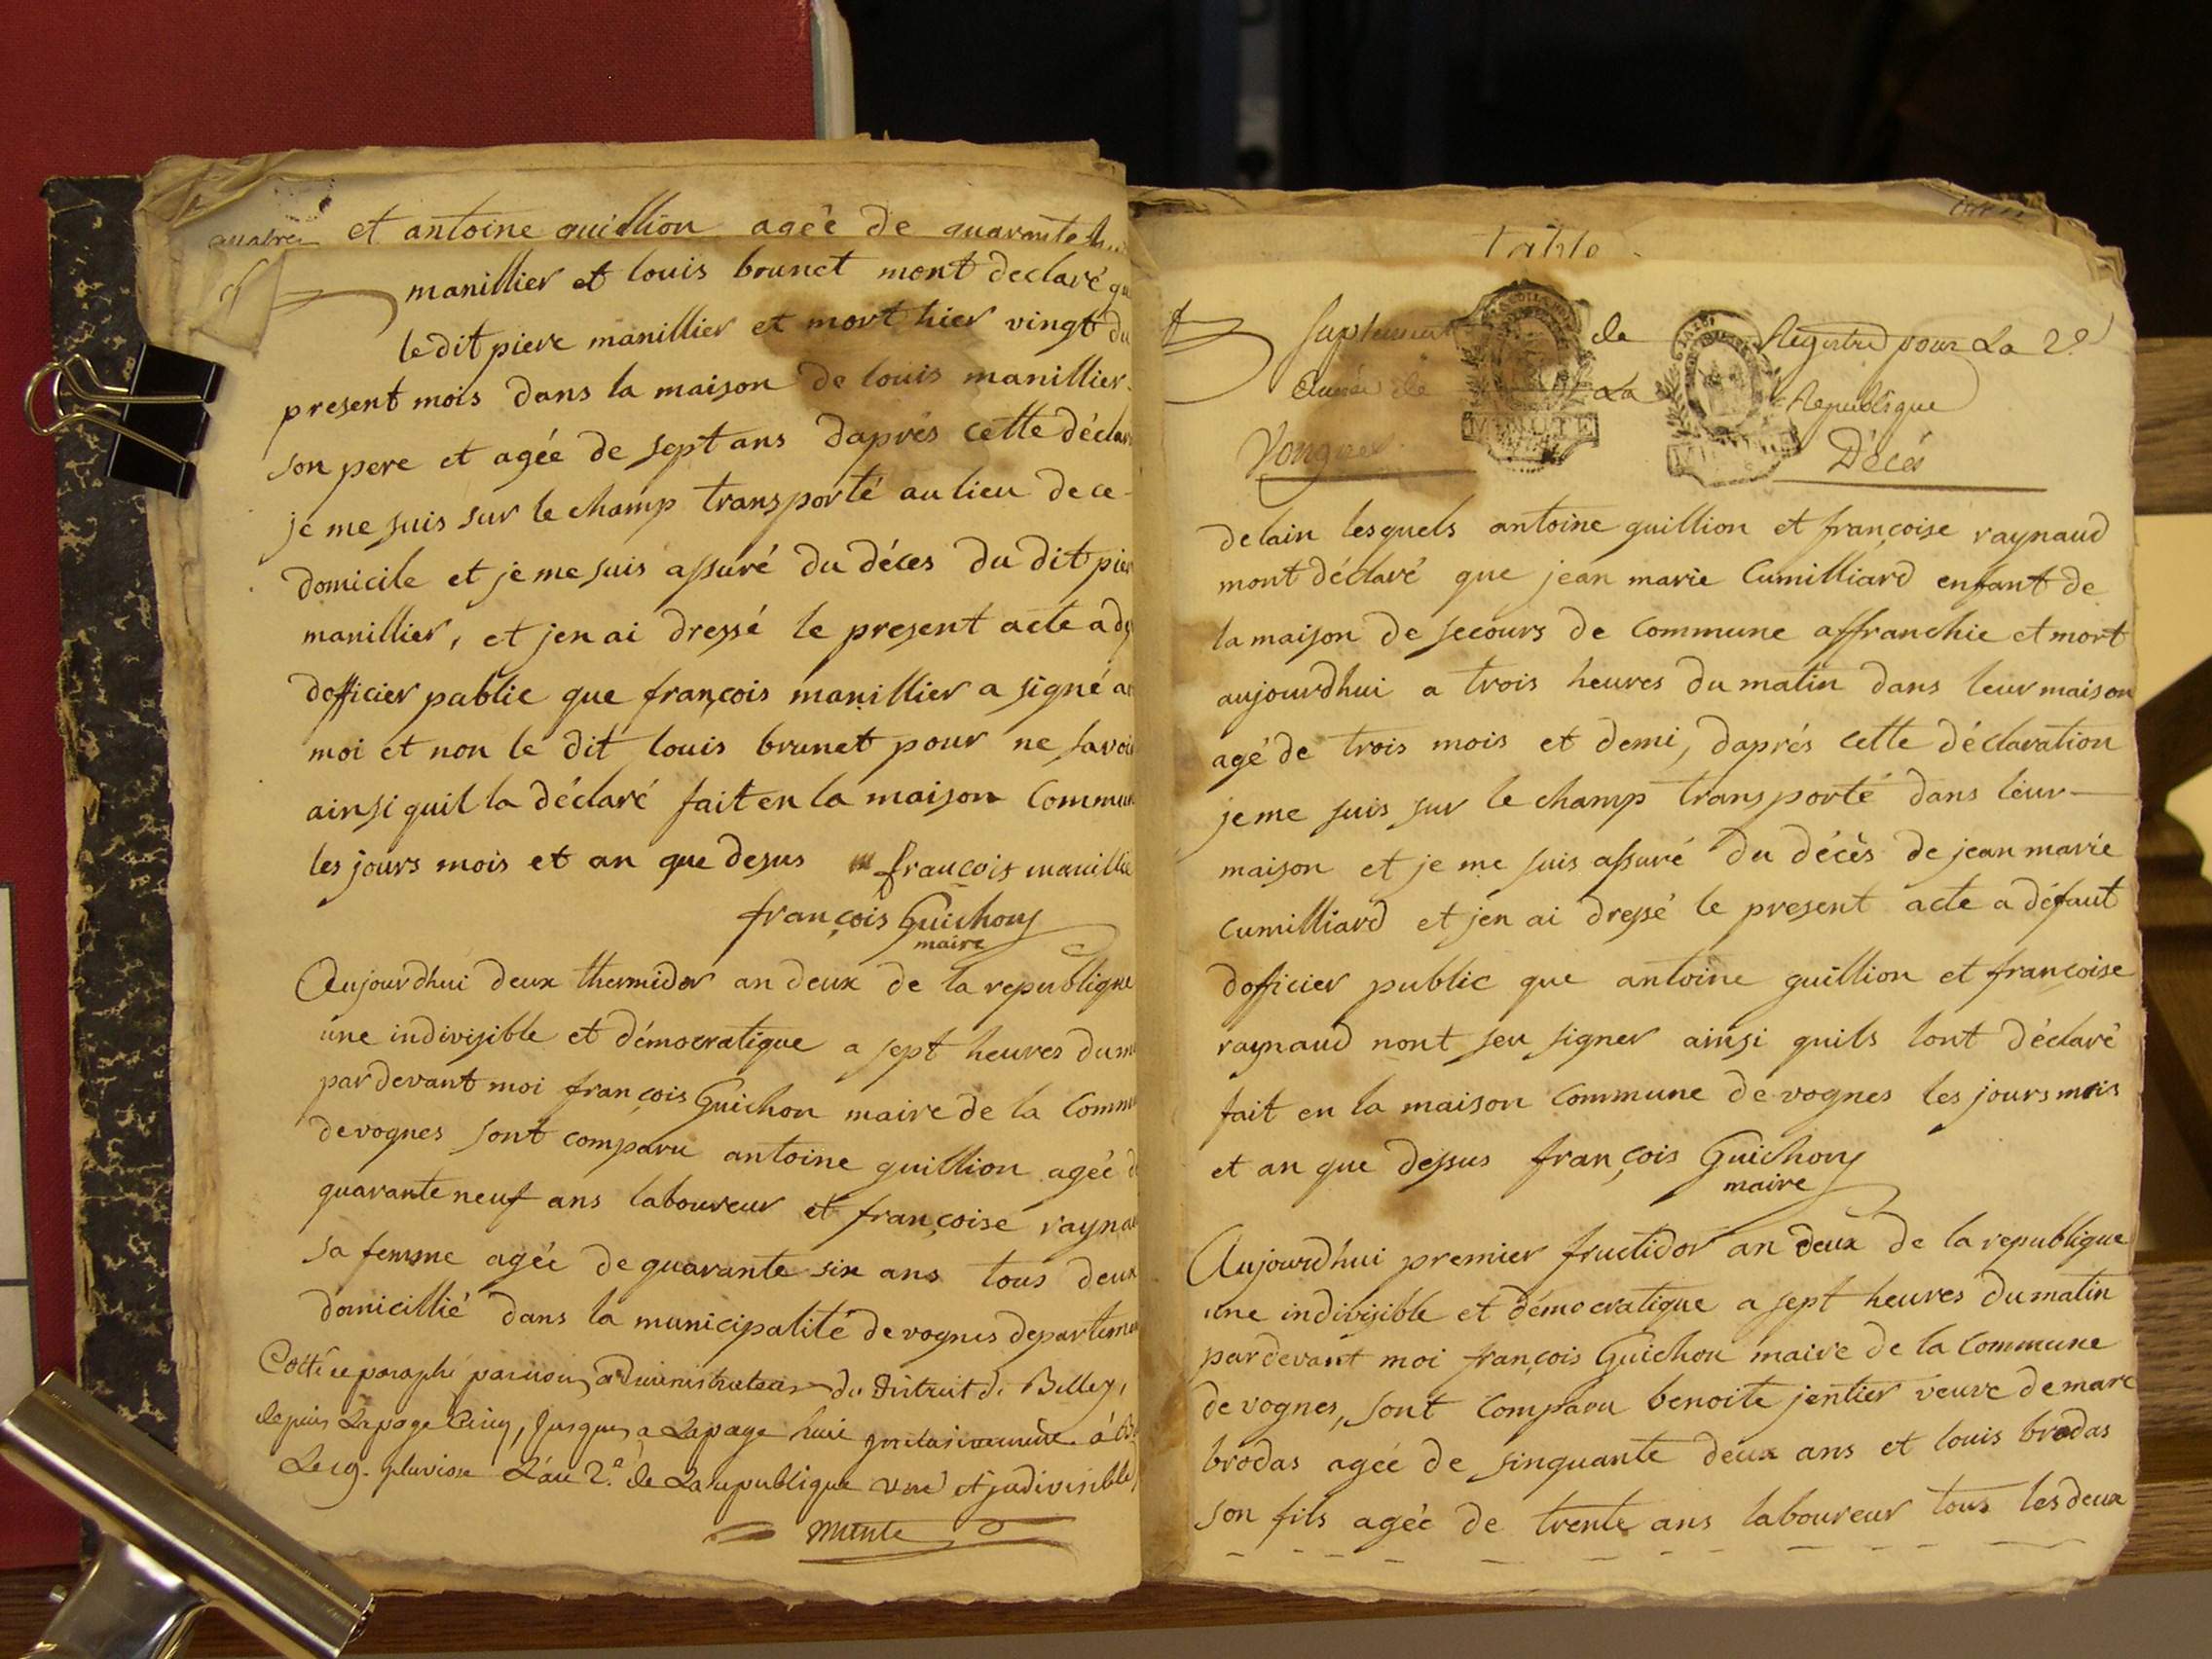 et antoine guillion agée de quarante
manillier et louis brunet mont declaré
le dit piere manillier et mort hier vingt du
present mois dans la maison de louis manillier
son pere et agée de sept ans daprés cette déclar
je me suis sur le champ transporté au lieu de ce
domicile et je me suis assuré du déces du dit pier
manillier, et jen ai dressé le present acte a
dofficier public que françois manillier a signé
moi et non le dit louis brunet pour ne savoir
ainsi quil la déclaré fait en la maison Commun
les jours mois et an que desus françois manillie
françois Guichon
maire
Aujourdhui deux thermidor an deux de la republique
une indivisible et démocratique a sept heures du
par devant moi françois Guichon maire de la Comm
de vognes sont comparu antoine guillion agée d
quarante neuf ans laboureur et françoise rayna
sa femme agée de quarante six ans tous deux
domicillié dans la municipalité de vognes departeme
Cotté et paraphé par nous administrateur du District de Belley,
depuis La page Cinq, jusques a La page huit inclusivement à
Le 19. pluviose L'an 2.e de La republique une et jndivisible
table
Suplement de Registre pour La 2e
année de La Republique
Vongnes Décés
delain lesquels antoine guillion et françoise raynaud
mont déclaré que jean marie Cumilliard enfant de
la maison de secours de Commune affranchie et mort
aujourdhui a trois heures du matin dans leur maison
agé de trois mois et demi, daprés cette déclaration
je me suis sur le champ transporté dans leur
maison et je me suis assuré du décès de jean marie
cumilliard et jen ai dressé le present acte a défaut
dofficier public que antoine guillion et françoise
raynaud nont seu signer ainsi quils lont déclaré
fait en la maison Commune de vognes les jours mois
et an que dessus françois Guichon
maire
Aujourd'hui premier fructidor an deux de la republique
une indivisible et démocratique a sept heures du matin
par devant moi françois Guichon maire de la Commune
de vognes, sont Comparu benoite jentier veuve de marc
brodas agée de sinquante deux ans et louis brodas
son fils agée de trente ans laboureur tous les deux